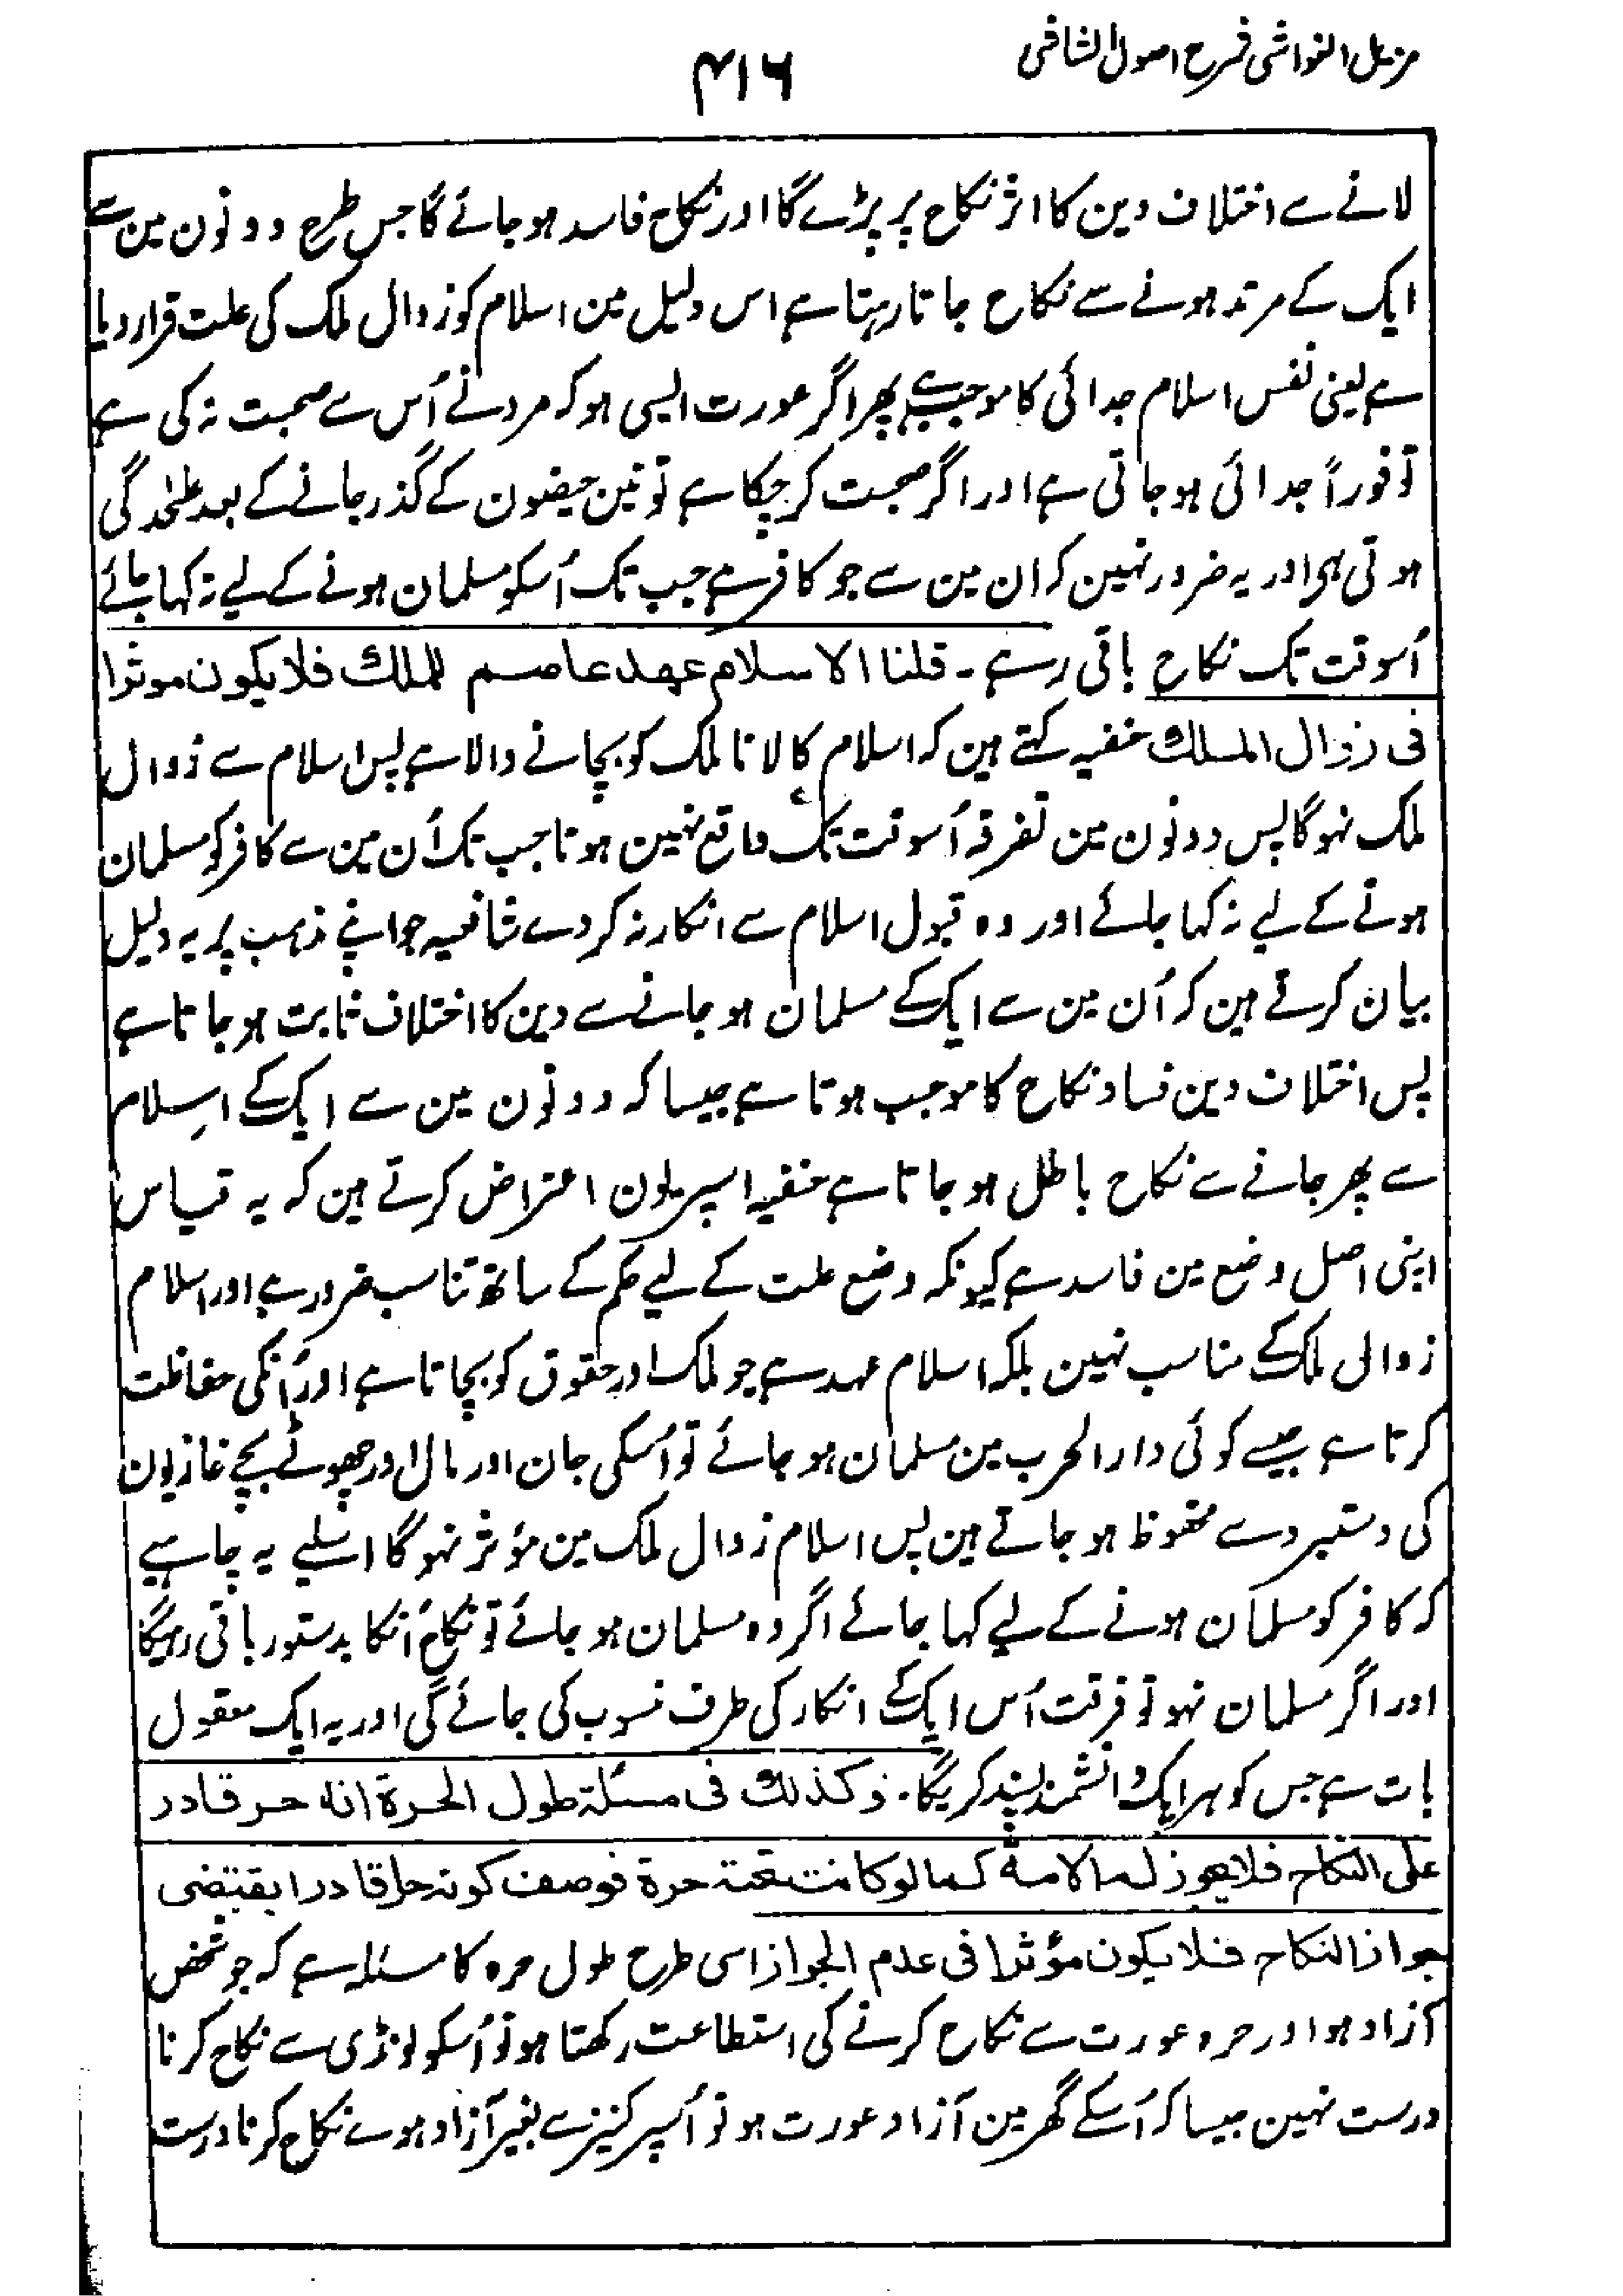 مزیل الغواشی شرح اصول الشاشی
۴۱۶
لانے سے اختلاف دین کا اثر نکاح پر پڑے گا اور نکاح فاسد ہو جائے گا جس طرح دونون مین سے
ایک کے مرتد ہونے سے نکاح جاتا رہتا ہے اس دلیل مین اسلام کو زوال ملک کی علت قرار دیا
ہے یعنی نفس اسلام جدائی کا موجب ہے پھر اگر عورت ایسی ہو کہ مرد نے اُس سے صحبت نہ کی ہے
تو فوراً جدائی ہو جاتی ہے اور اگر صحبت کر چکا ہے تو تین حیضون کے گذر جانے کے بعد علٰحدگی
ہوتی ہی اور یہ ضرور نہین کہ ان مین سے جو کافر ہے جب تک اُسکو مسلمان ہونے کے لیے نہ کہا جائے
اُسوقت تک نکاح باقی رہے ۔ قلنا الاسلام عهد عاصم للملك فلا يكون موثرا
فی زوال الملك حنفیہ کہتے ہین کہ اسلام کا لانا ملک کو بچانے والا ہے پس اسلام سے زوال
ملک نہوگا پس دونون مین تفرقہ اُسوقت تک واقع نہین ہوتا جب تک اُن مین سے کافر کو مسلمان
ہونے کے لیے نہ کہا جائے اور وہ قبول اسلام سے انکار نہ کر دے شافعیہ جو اپنے مذہب پر یہ دلیل
بیان کرتے ہین کہ اُن مین سے ایک کے مسلمان ہو جانے سے دین کا اختلاف ثابت ہو جاتا ہے
پس اختلاف دین فساد نکاح کا موجب ہوتا ہے جیسا کہ دونون مین سے ایک کے اسلام
سے پھر جانے سے نکاح باطل ہو جاتا ہے حنفیہ اسپر یون اعتراض کرتے ہین کہ یہ قیاس
اپنی اصل وضع مین فاسد ہے کیونکہ وضع علت کے لیے حکم کے ساتھ تناسب ضرور ہے اور اسلام
زوال ملک کے مناسب نہین بلکہ اسلام عہد ہے جو ملک اور حقوق کو بچاتا ہے اور اُنکی حفاظت
کرتا ہے جیسے کوئی دار الحرب مین مسلمان ہو جائے تو اُسکی جان اور مال اور چھوٹے بچے غازیون
کی دستبرد سے محفوظ ہو جاتے ہین پس اسلام زوال ملک مین مؤثر نہوگا اسلیے یہ چاہیے
کہ کافر کو مسلمان ہونے کے لیے کہا جائے اگر وہ مسلمان ہو جائے تو نکاح اُنکا بدستور باقی رہیگا
اور اگر مسلمان نہو تو فرقت اُس ایک کے انکار کی طرف منسوب کی جائے گی اور یہ ایک معقول
بات ہے جس کو ہر ایک دانشمند پسند کریگا ۔ وكذلك فی مسئلة طول الحرة انه حر قادر
على النكاح فلا يجوز له الامة كما لو كانت تحته حرة فوصف كونه حرا قادرا يقتضی
جواز النكاح فلا يكون مؤثرا فی عدم الجواز اسی طرح طول حرہ کا مسئلہ ہے کہ جو شخص
آزاد ہو اور حرہ عورت سے نکاح کرنے کی استطاعت رکھتا ہو تو اُسکو لونڈی سے نکاح کرنا
درست نہین جیسا کہ اُسکے گھر مین آزاد عورت ہو تو اُسپر کنیز سے بغیر آزاد ہوے نکاح کرنا درست